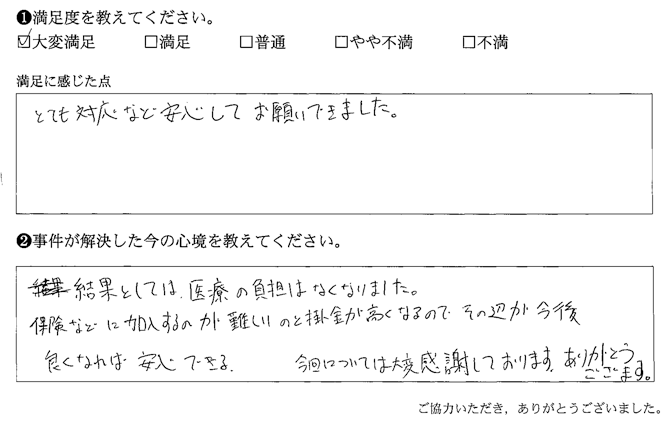 ❶満足度を教えてください。
☑大変満足 □満足 □普通 □やや不満 □不満
満足に感じた点
とても対応など安心してお願いできました。
❷事件が解決した今の心境を教えてください。
結果としては、医療の負担はなくなりました。
保険などに加入するのが難しいのと掛金が高くなるのでその辺が今後
良くなれば安心できる。 今回については大変感謝しております。ありがとう
ございます。
ご協力いただき，ありがとうございました。